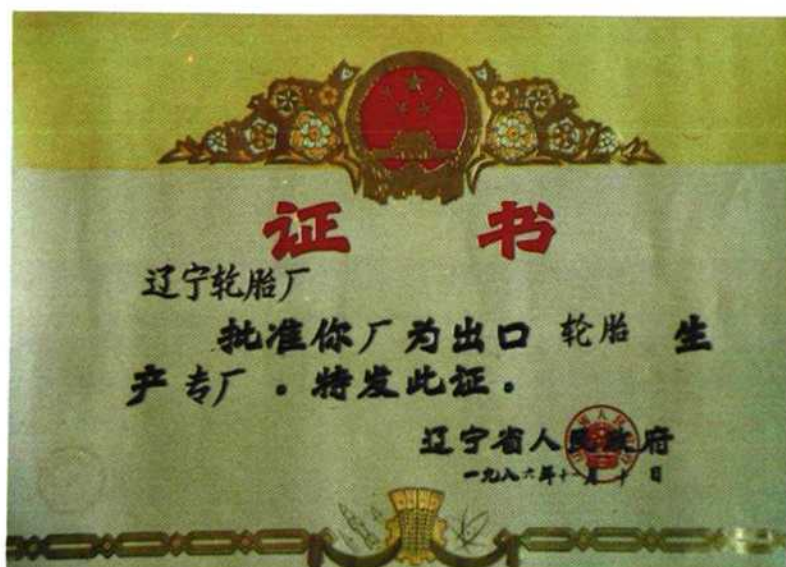 证 书
辽宁轮胎厂
批准你厂为出口 轮胎 生
产专厂。特发此证。
辽宁省人民政府
一九八六年十一月十日